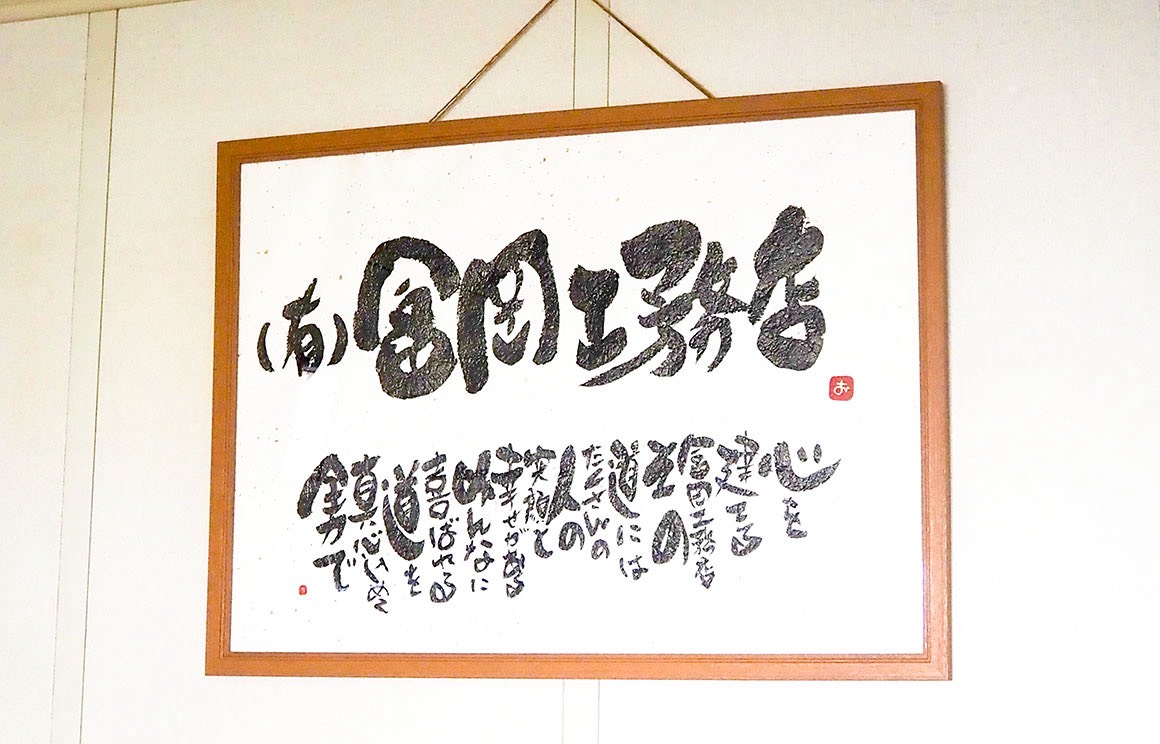 (有)富岡工務店
お
心を
建てる
富岡工務店
の
道には
たくさんの
人の
笑顔と
幸せがある
みんなに
喜ばれる
道を
真心こめて
全力で